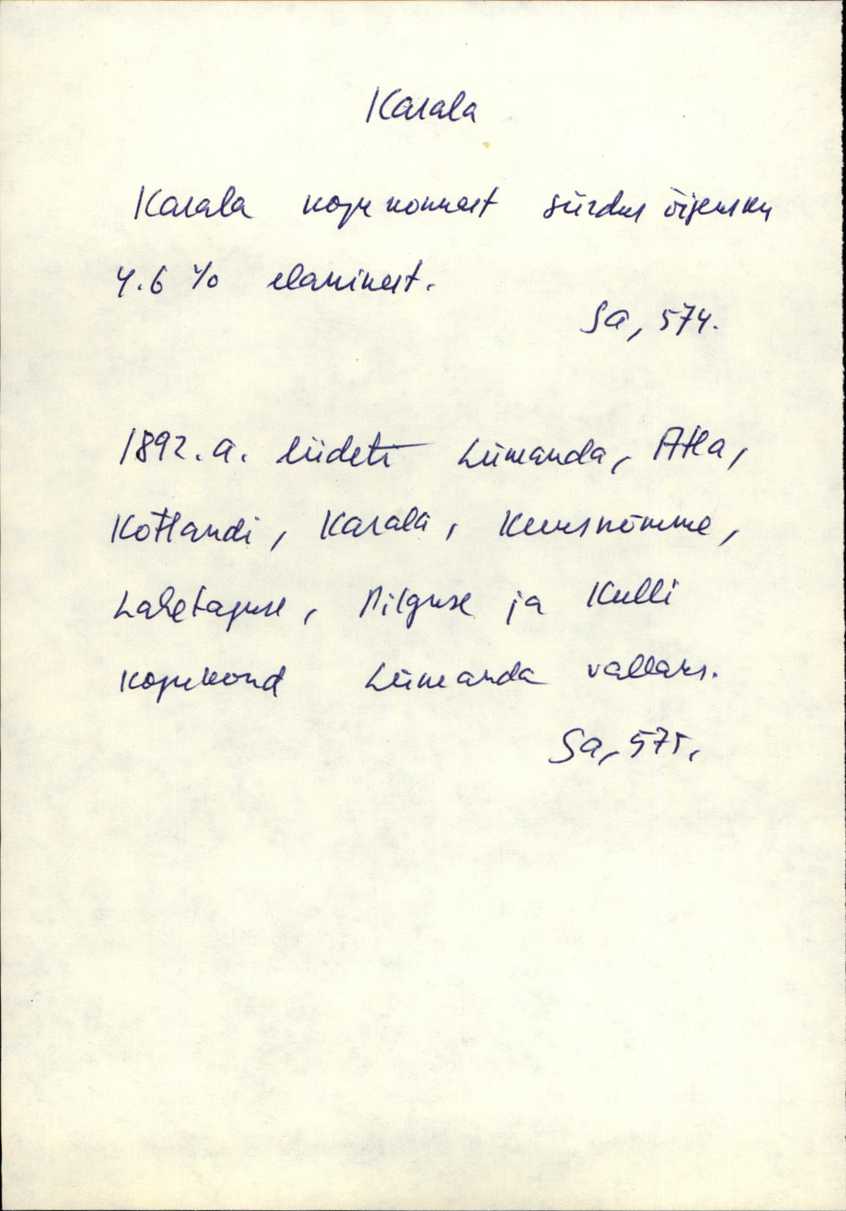 Karala
Karala kogukonnast siirdus õigeusku
4.6 % elanikest.
Sa, 574.
1892. a. liideti Lümanda, Atla,
Kotlandi, Karala, Kuusnõmme,
Lahetaguse, Pilguse ja Kulli
kogukond Lümanda vallaks.
Sa, 575.